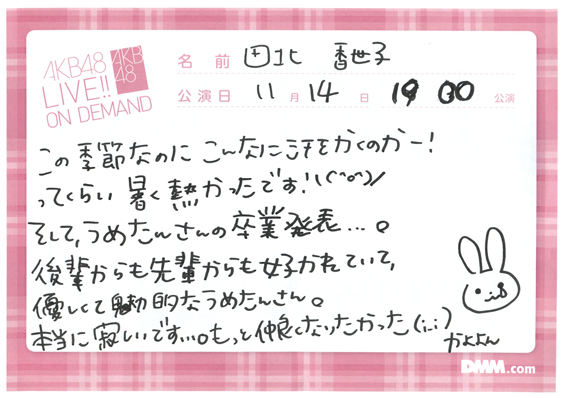 AKB48
LIVE!!
ON DEMAND
AKB
48
名前 田北 香世子
公演日 11月14日 19:00 公演
この季節なのに こんなに汗をかくのかー!
ってくらい暑く熱かったです!\(^o^)/
そして、うめたんさんの卒業発表...。
後輩からも先輩からも好かれていて、
優しくて魅力的なうめたんさん。
本当に寂しいです...。もっと仲良くなりたかった(;_;)
かよよん
DMM.com